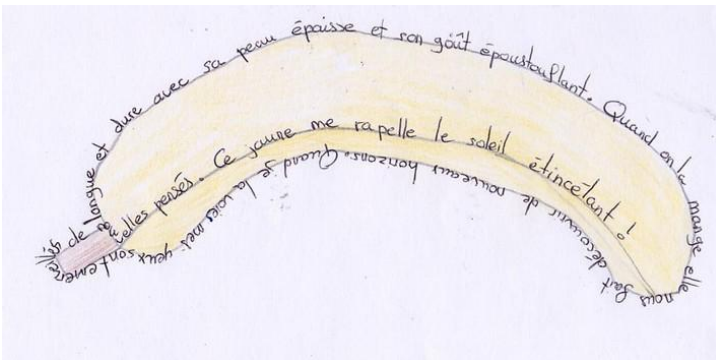 longue et dure avec sa peau épaisse et son goût époustouflant. Quand on la mange elle nous fait
découvrir de nouveaux horizons. Quand je la voies mes yeux sont émerveillés de
nouvelles pensés. Ce jaune me rapelle le soleil étincelant !